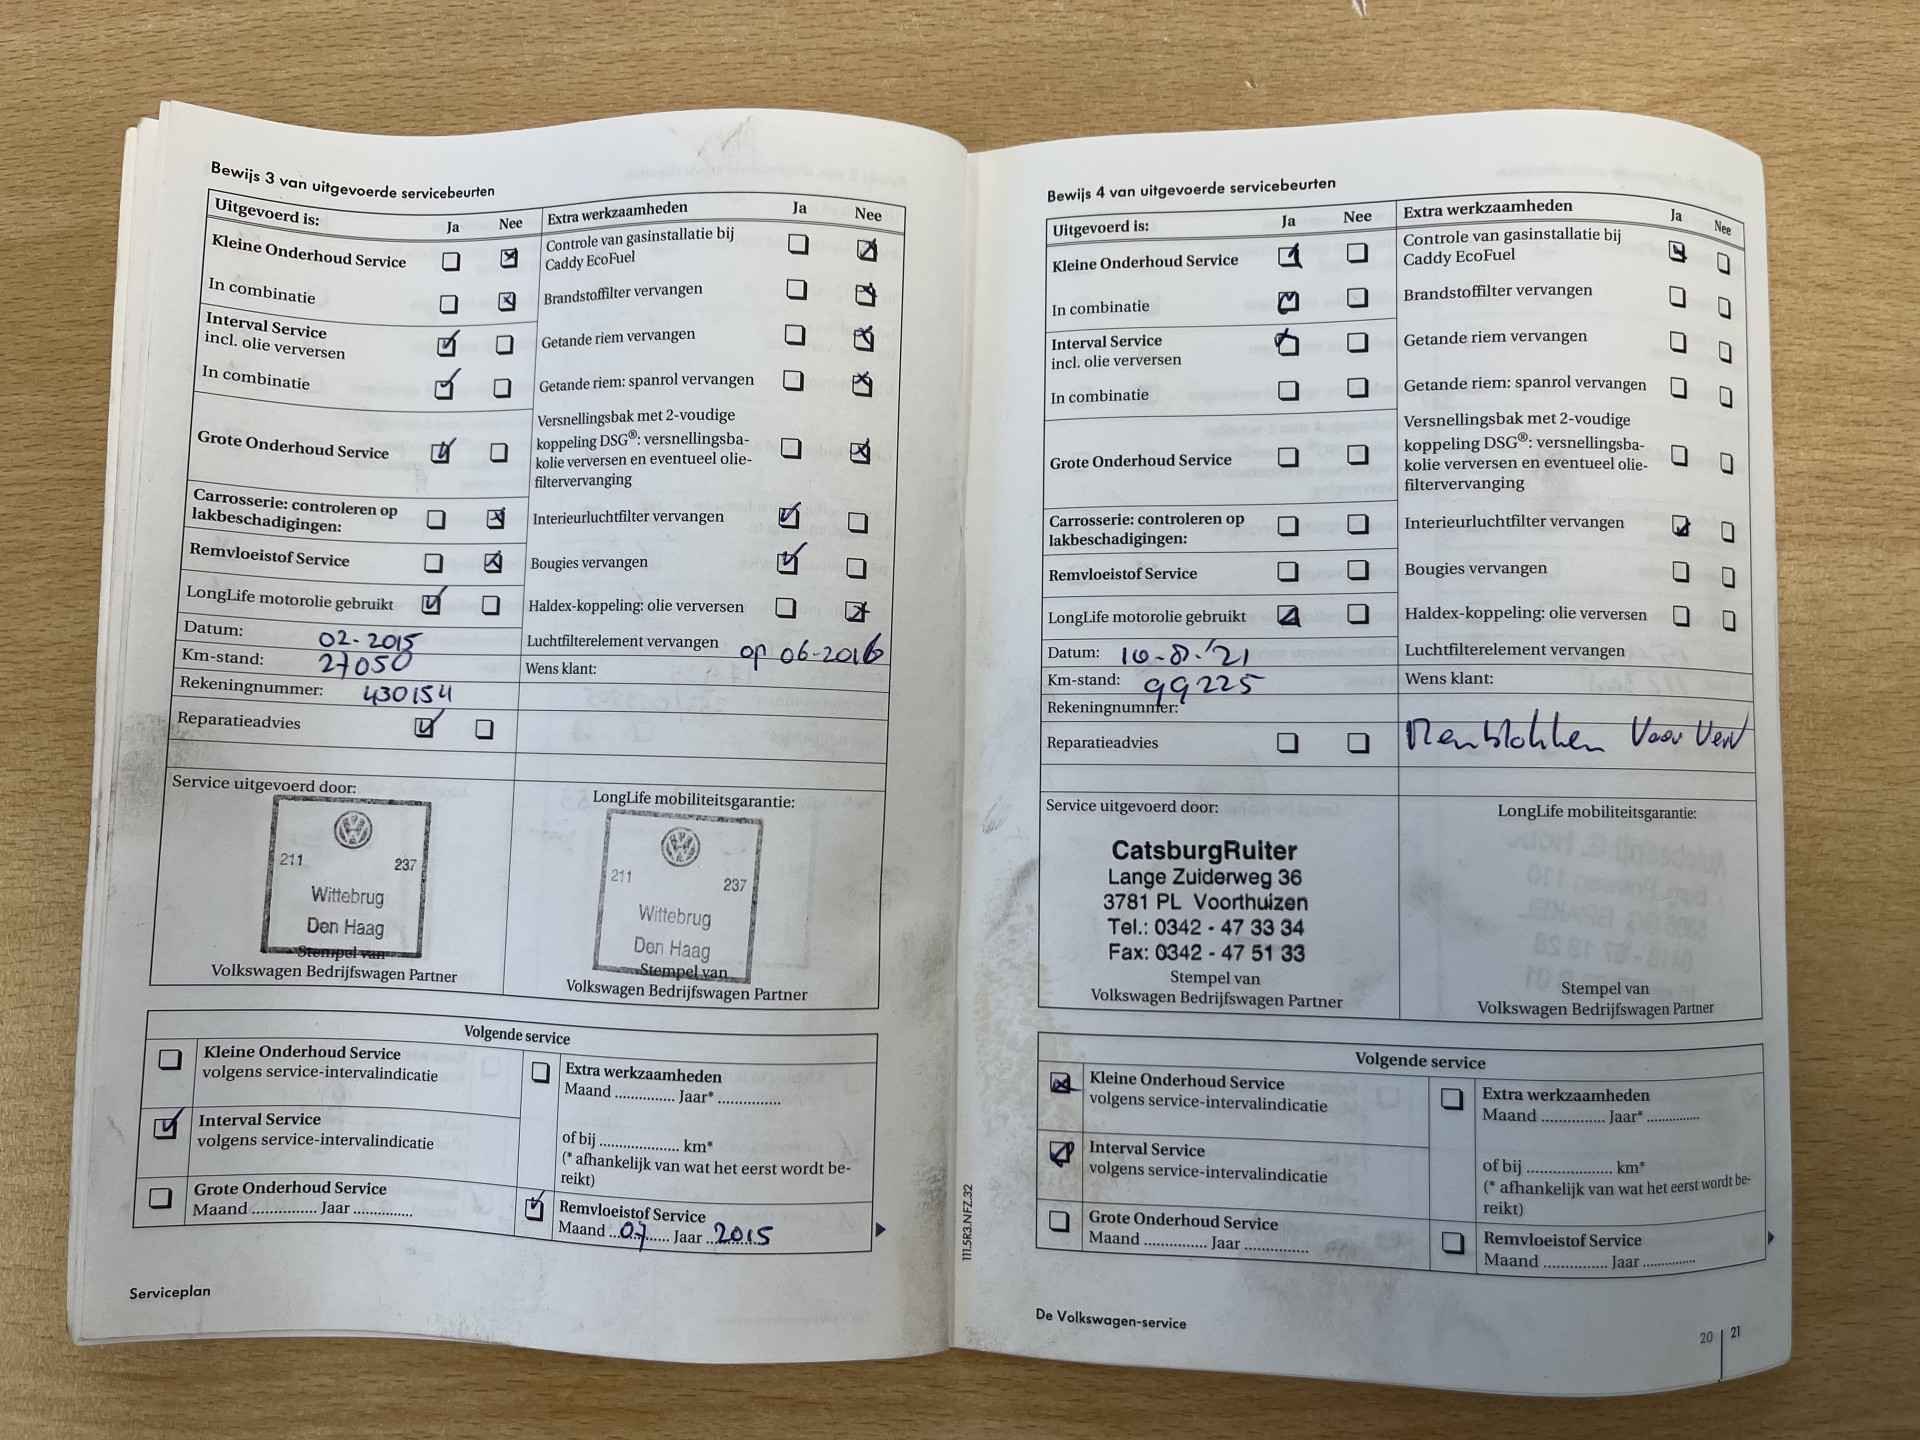 Bewijs 3 van uitgevoerde servicebeurten
Uitgevoerd is: Ja Nee
Kleine Onderhoud Service
In combinatie
Interval Service
incl. olie verversen
In combinatie
Grote Onderhoud Service
Carrosserie: controleren op
lakbeschadigingen:
Remvloeistof Service
LongLife motorolie gebruikt
Datum: 02-2015
Km-stand: 27050
Rekeningnummer: 430154
Reparatieadvies
Extra werkzaamheden Ja Nee
Controle van gasinstallatie bij
Caddy EcoFuel
Brandstoffilter vervangen
Getande riem vervangen
Getande riem: spanrol vervangen
Versnellingsbak met 2-voudige
koppeling DSG®: versnellingsba-
kolie verversen en eventueel olie-
filtervervanging
Interieurluchtfilter vervangen
Bougies vervangen
Haldex-koppeling: olie verversen
Luchtfilterelement vervangen op 06-2016
Wens klant:
Service uitgevoerd door:
211 237
Wittebrug
Den Haag
Stempel van
Volkswagen Bedrijfswagen Partner
LongLife mobiliteitsgarantie:
211 237
Wittebrug
Den Haag
Stempel van
Volkswagen Bedrijfswagen Partner
Volgende service
Kleine Onderhoud Service
volgens service-intervalindicatie
Interval Service
volgens service-intervalindicatie
Grote Onderhoud Service
Maand ............... Jaar ..............
Extra werkzaamheden
Maand ............... Jaar* ...............
of bij .................... km*
(* afhankelijk van wat het eerst wordt be-
reikt)
Remvloeistof Service
Maand ...07... Jaar ..2015
Serviceplan
Bewijs 4 van uitgevoerde servicebeurten
Uitgevoerd is: Ja Nee
Kleine Onderhoud Service
In combinatie
Interval Service
incl. olie verversen
In combinatie
Grote Onderhoud Service
Carrosserie: controleren op
lakbeschadigingen:
Remvloeistof Service
LongLife motorolie gebruikt
Datum: 10-8-'21
Km-stand: 99225
Rekeningnummer:
Reparatieadvies
Extra werkzaamheden Ja Nee
Controle van gasinstallatie bij
Caddy EcoFuel
Brandstoffilter vervangen
Getande riem vervangen
Getande riem: spanrol vervangen
Versnellingsbak met 2-voudige
koppeling DSG®: versnellingsba-
kolie verversen en eventueel olie-
filtervervanging
Interieurluchtfilter vervangen
Bougies vervangen
Haldex-koppeling: olie verversen
Luchtfilterelement vervangen
Wens klant:
Remblokken Voor Verv
Service uitgevoerd door:
CatsburgRuiter
Lange Zuiderweg 36
3781 PL Voorthuizen
Tel.: 0342 - 47 33 34
Fax: 0342 - 47 51 33
Stempel van
Volkswagen Bedrijfswagen Partner
LongLife mobiliteitsgarantie:
Stempel van
Volkswagen Bedrijfswagen Partner
Volgende service
Kleine Onderhoud Service
volgens service-intervalindicatie
Interval Service
volgens service-intervalindicatie
Grote Onderhoud Service
Maand ............... Jaar ...............
Extra werkzaamheden
Maand ............... Jaar* .............
of bij .................... km*
(* afhankelijk van wat het eerst wordt be-
reikt)
Remvloeistof Service
Maand ............... Jaar .............
111.5R3.NFZ.32
De Volkswagen-service
20 21